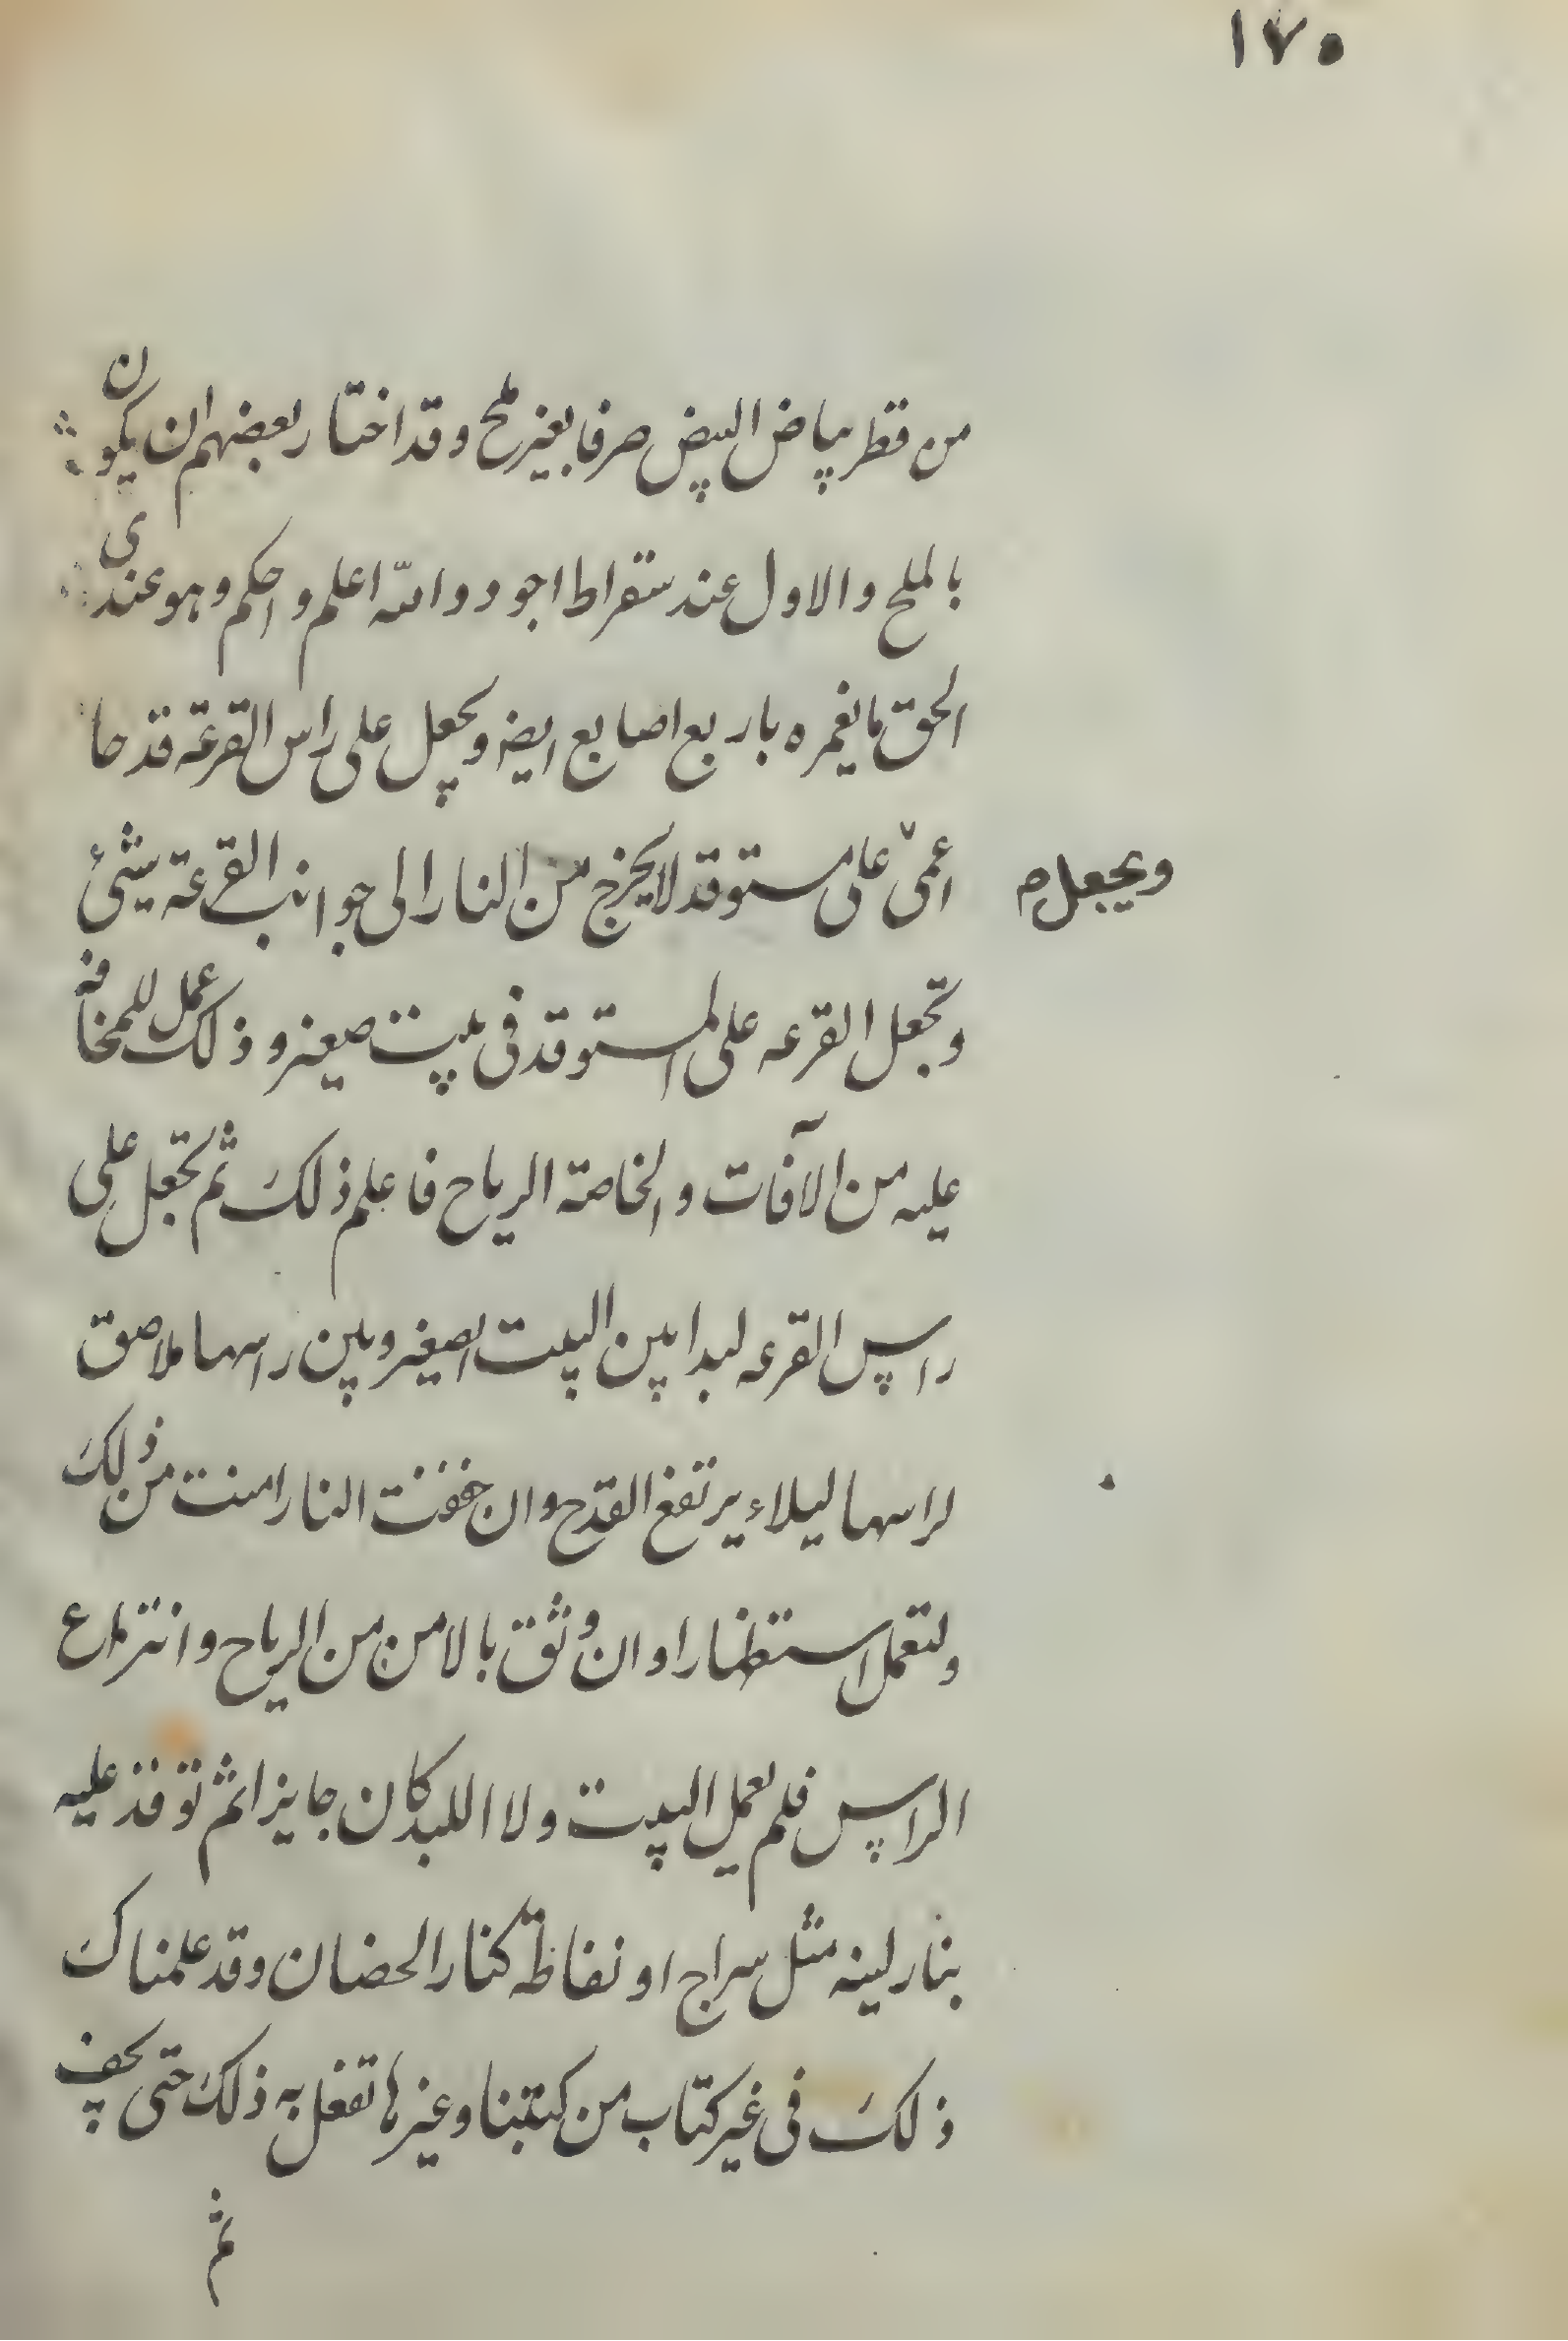 ١٧٥
من قطر بياض البيض صرفا بغير ملح وقد اختار بعضهم ان يكون
بالملح والاول عند سقراط اجود والله اعلم واحكم وهو عندى
الحق ما يغمره باربع اصابع ايضا ويجعل على راس القرعة قدحا
اعمى على مستوقد لا يخرج من النار الى جوانب القرعة شئ
ويجعل م
وتجعل القرعه على المستوقد فى بيت صغير وذلك عمل للمخافة
عليه من الآفات والخاصة الرياح فاعلم ذلك ثم تجعل على
راس القرعه لبدا بين البيت الصغير وبين راسها ملاصق
لراسها ليلاء يرتفع القدح وان خففت النار امنت من ذلك
ولتعمل استظهارا وان وثق بالامن من الرياح وانتزاع
الراس فلم يعمل البيت ولا اللبد كان جايزا ثم توقد عليه
بنار لينه مثل سراج او نفاطة كنار الحضان وقد علمناك
ذلك فى غير كتاب من كتبنا وغيرها تفعل به ذلك حتى يجف
ثم